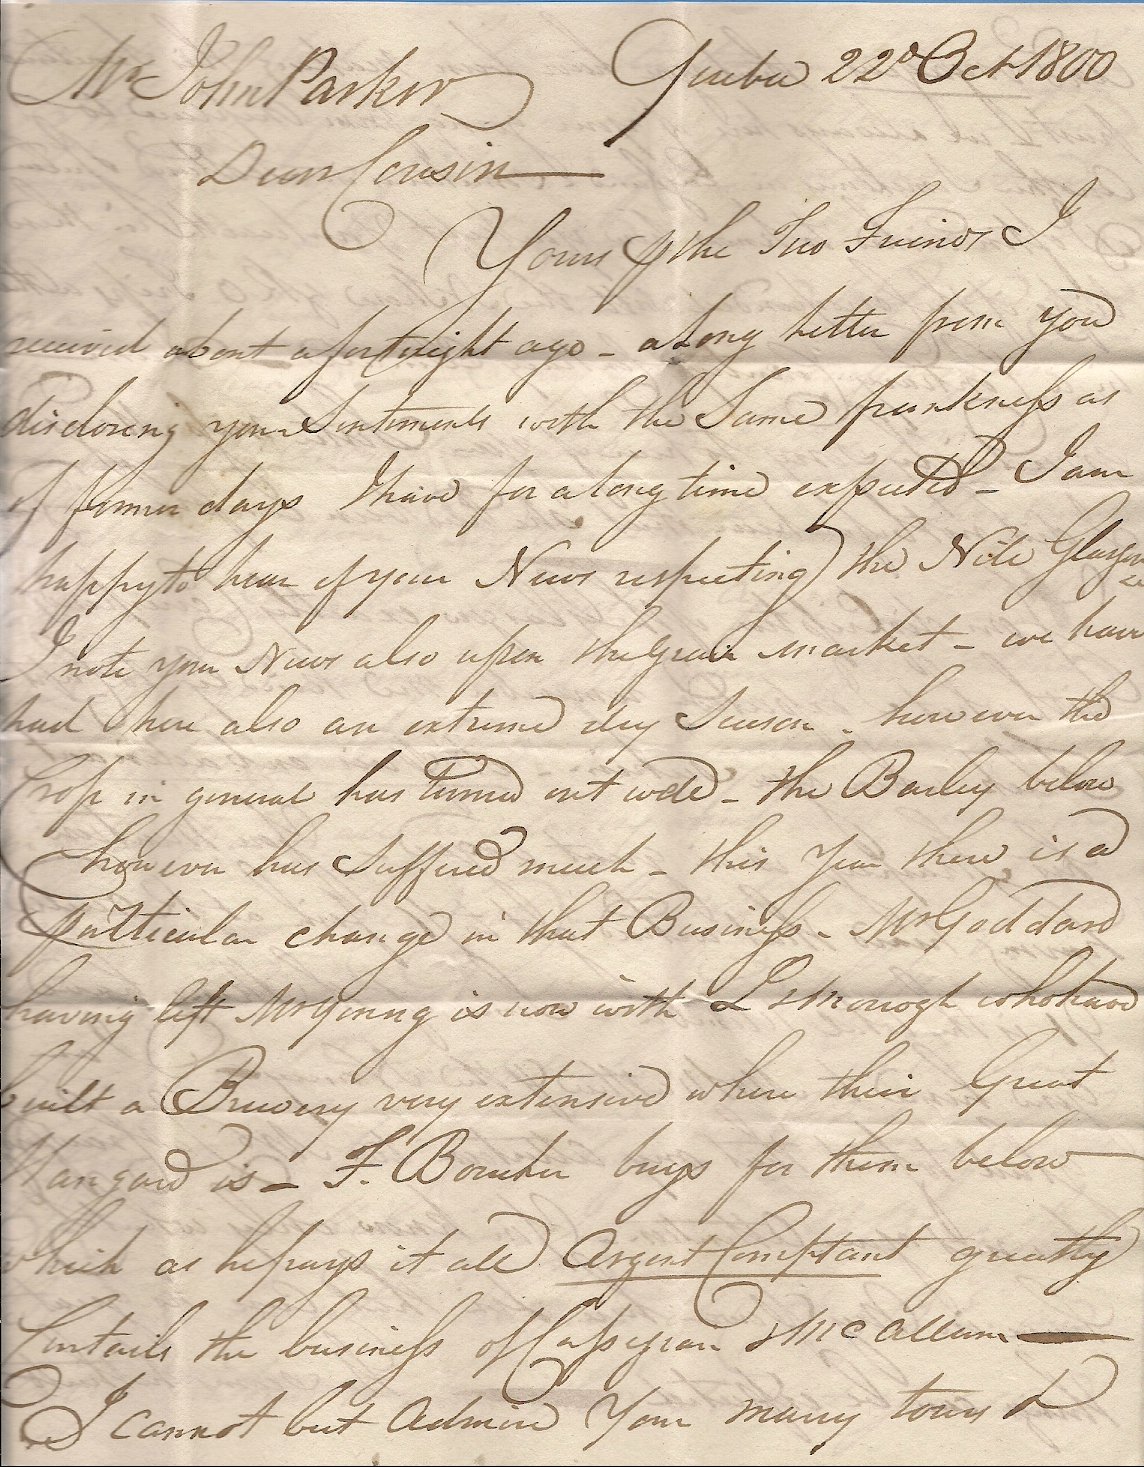 Mr John Parker Quebec 22d Oct 1800
Dear Cousin
Yours p the Two Friends I
received about a fortnight ago - a Long Letter from you
disclosing your Sentiments with the Same frankness as
of former days I have for a long time expected - I am
happy to hear of your News respecting the Nile Glasgow
I note your News also upon the Grain market - we have
had here also an extreme dry Season - however the
Crop in general has turned out well - the Barley below
however has Suffered much - this Year there is a
particular change in that Business - Mr Goddard
having left Mr Young is now with who have
built a Brewery very extensive where their Great
Hangard is - F. Boucher buys for them below
which as he pays it all Argent Comptant greatly
Curtails the business of & McCallum
I cannot but Admire Your many tours &